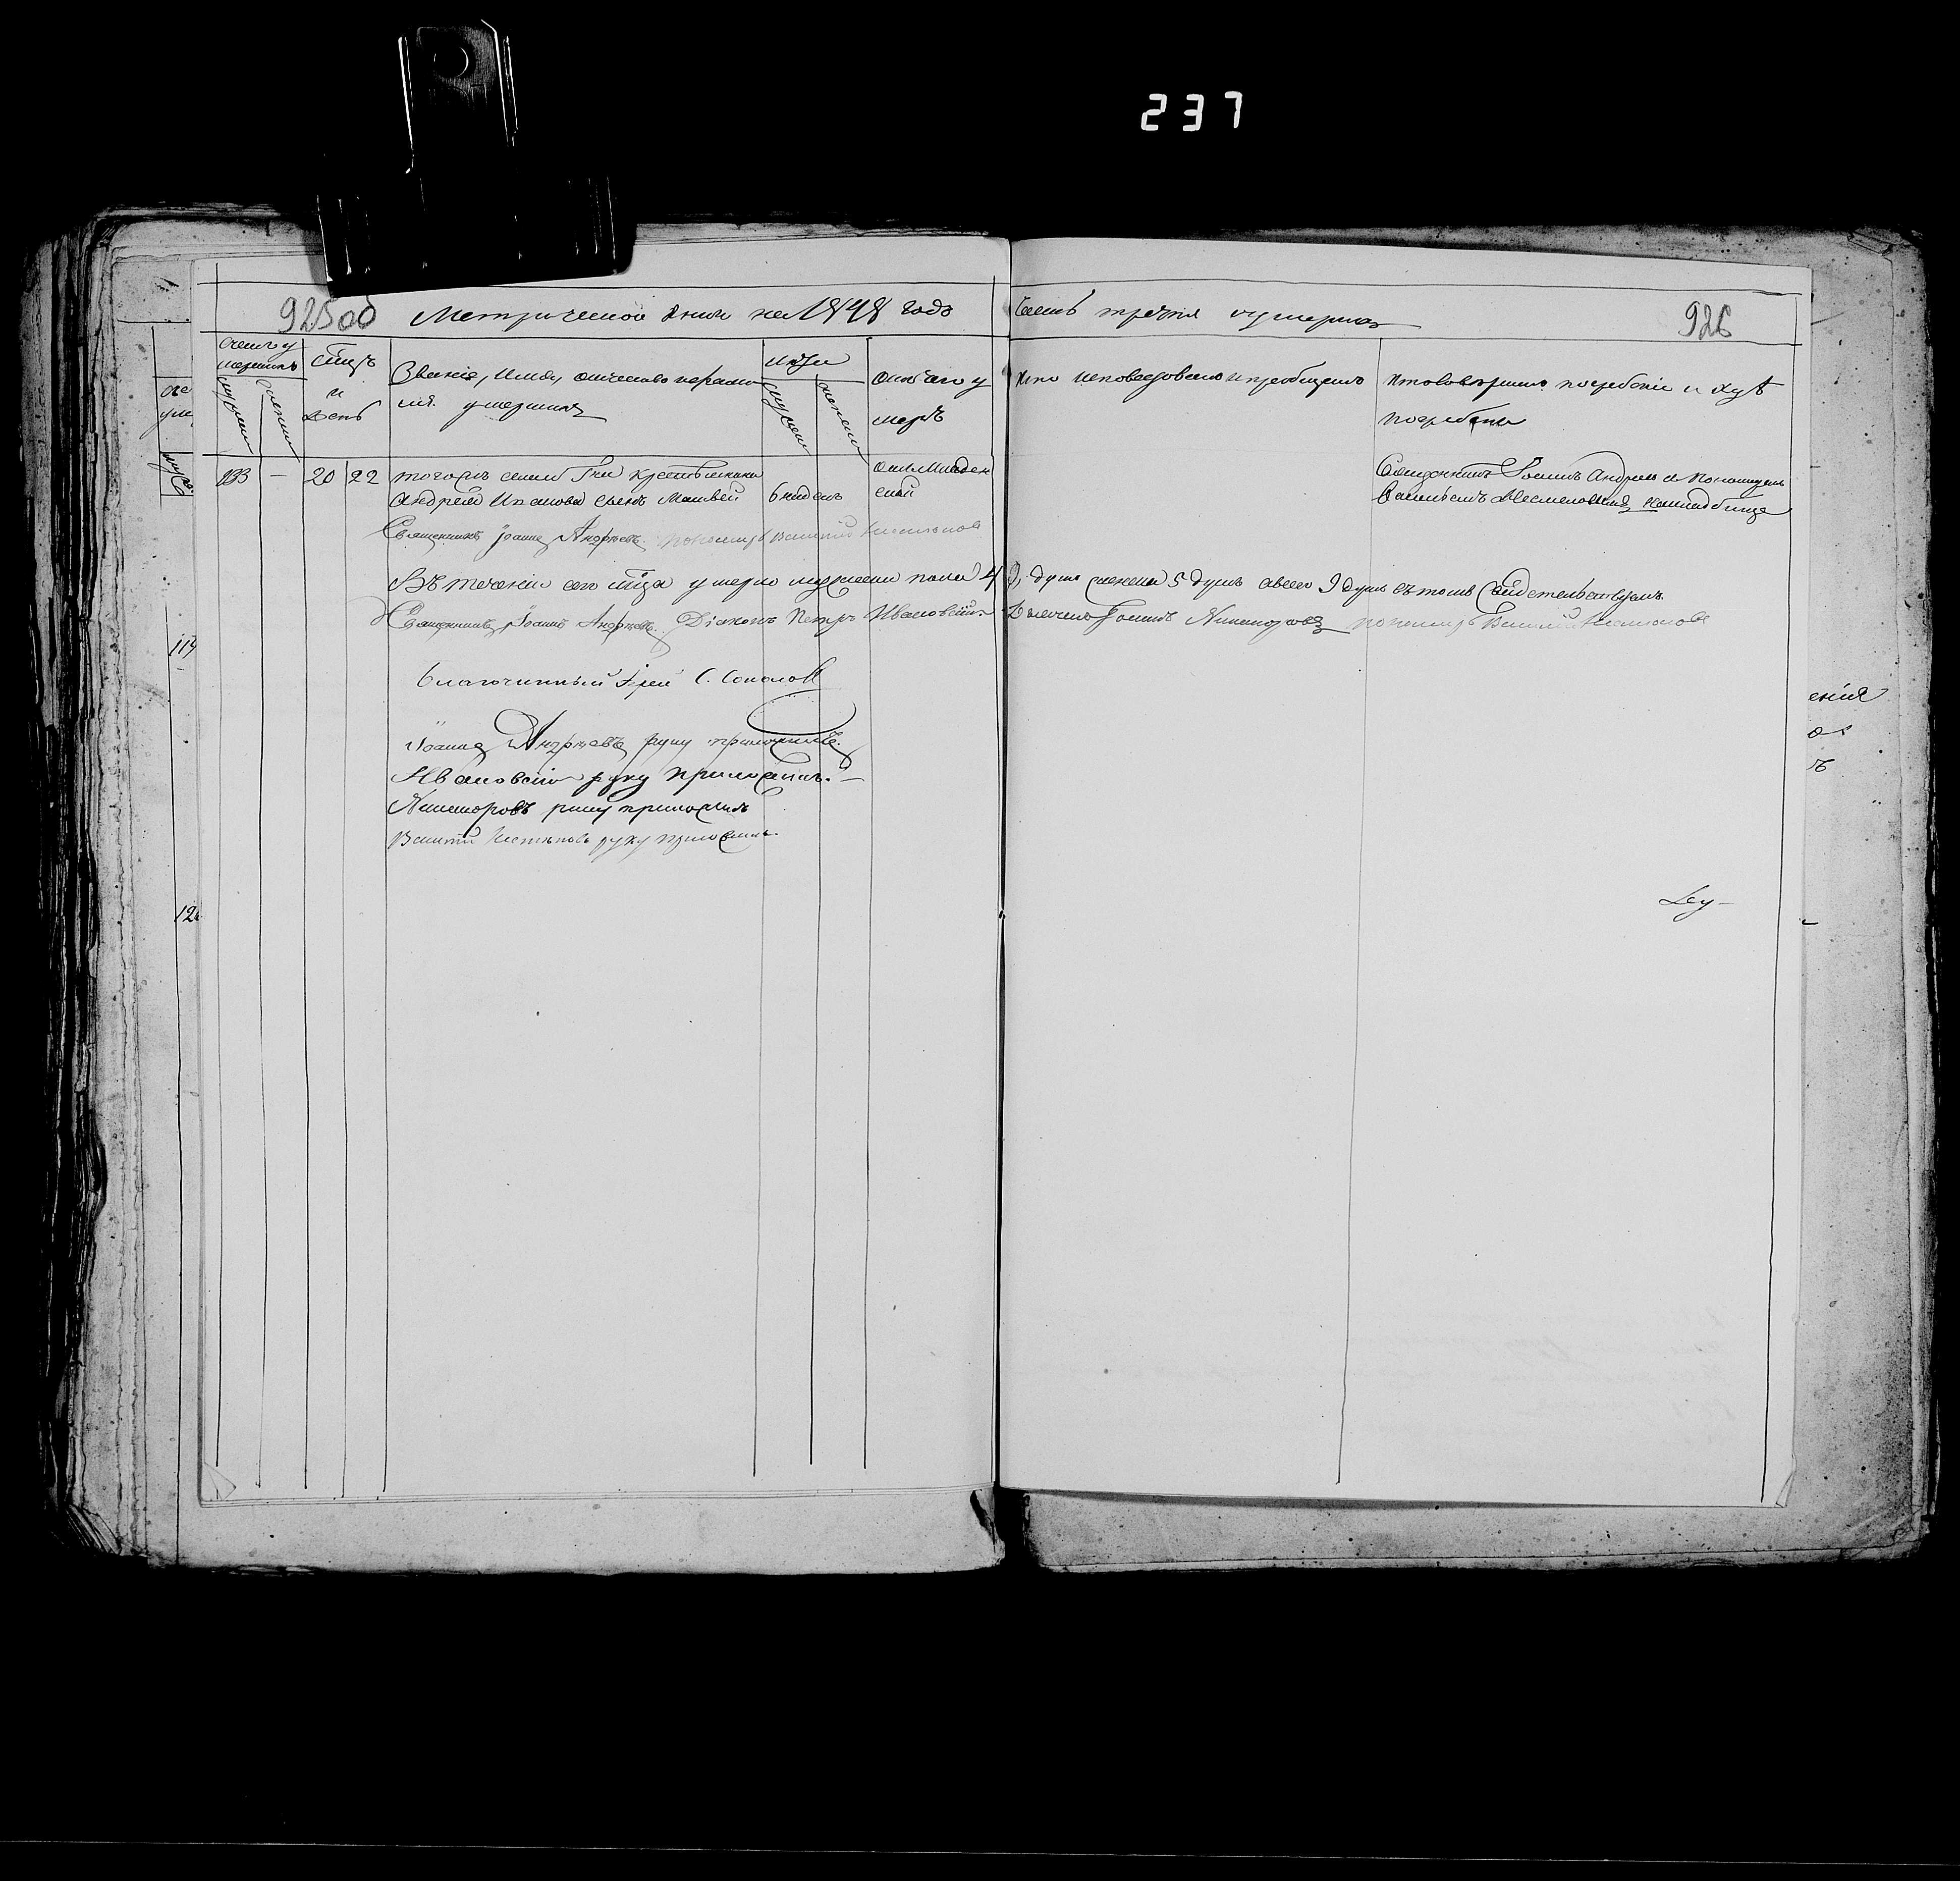 237
925об Метрической книги на 1848 годъ Часть третія о умершихъ 926
Счетъ умершихъ
мужеск женски
Мцъ и День
Званіе, имя, отчество и фамилія умершихъ
Лѣта
мужеск женск
Отъ чего умеръ
Кто исповедовалъ и пріобщалъ
Кто совершалъ погребеніе и гдѣ погребены
133 — 20 22 тогожъ села Гна крестьянина
Андрея Ипатова сынъ Матвей 6 недель
отъ младен
ской
Священникъ Іоаннъ Андреевъ и Пономарь
Василий на кладбище
Священникъ Іоаннъ Андреевъ. пономарь Василий
Въ теченіи сего мца умерло мужеска пола 4, душъ женска 5 душъ а всего 9 душъ въ томъ свидетельствуемъ.
Священникъ Іоаннъ Андреевъ. Діаконъ Петръ Ивановскій. Дьячекъ Никаноровъ пономарь Василий
Благочинный Іерей С. Соколовъ
Іоаннъ Андреевъ руку приложилъ.
Ивановскій руку приложилъ. —
Никаноровъ руку приложилъ
Василий руку приложилъ.
119
12
ения
ъ